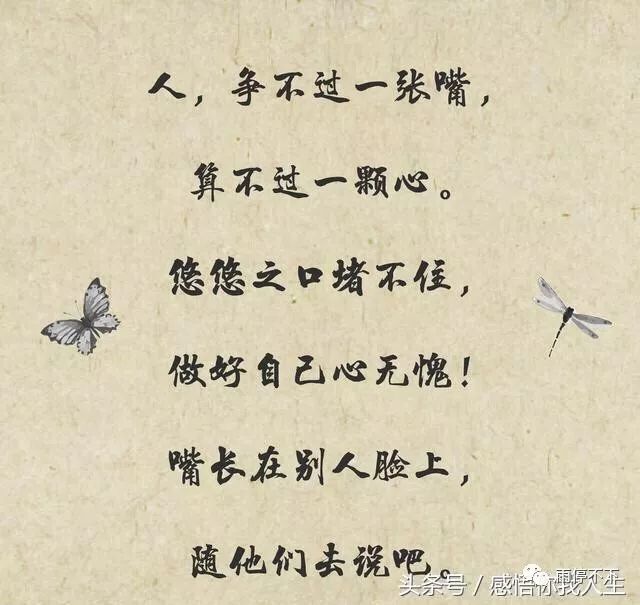 人，争不过一张嘴，
算不过一颗心。
悠悠之口堵不住，
做好自己心无愧！
嘴长在别人脸上，
随他们去说吧。
雨停不下
头条号／感悟你我人生